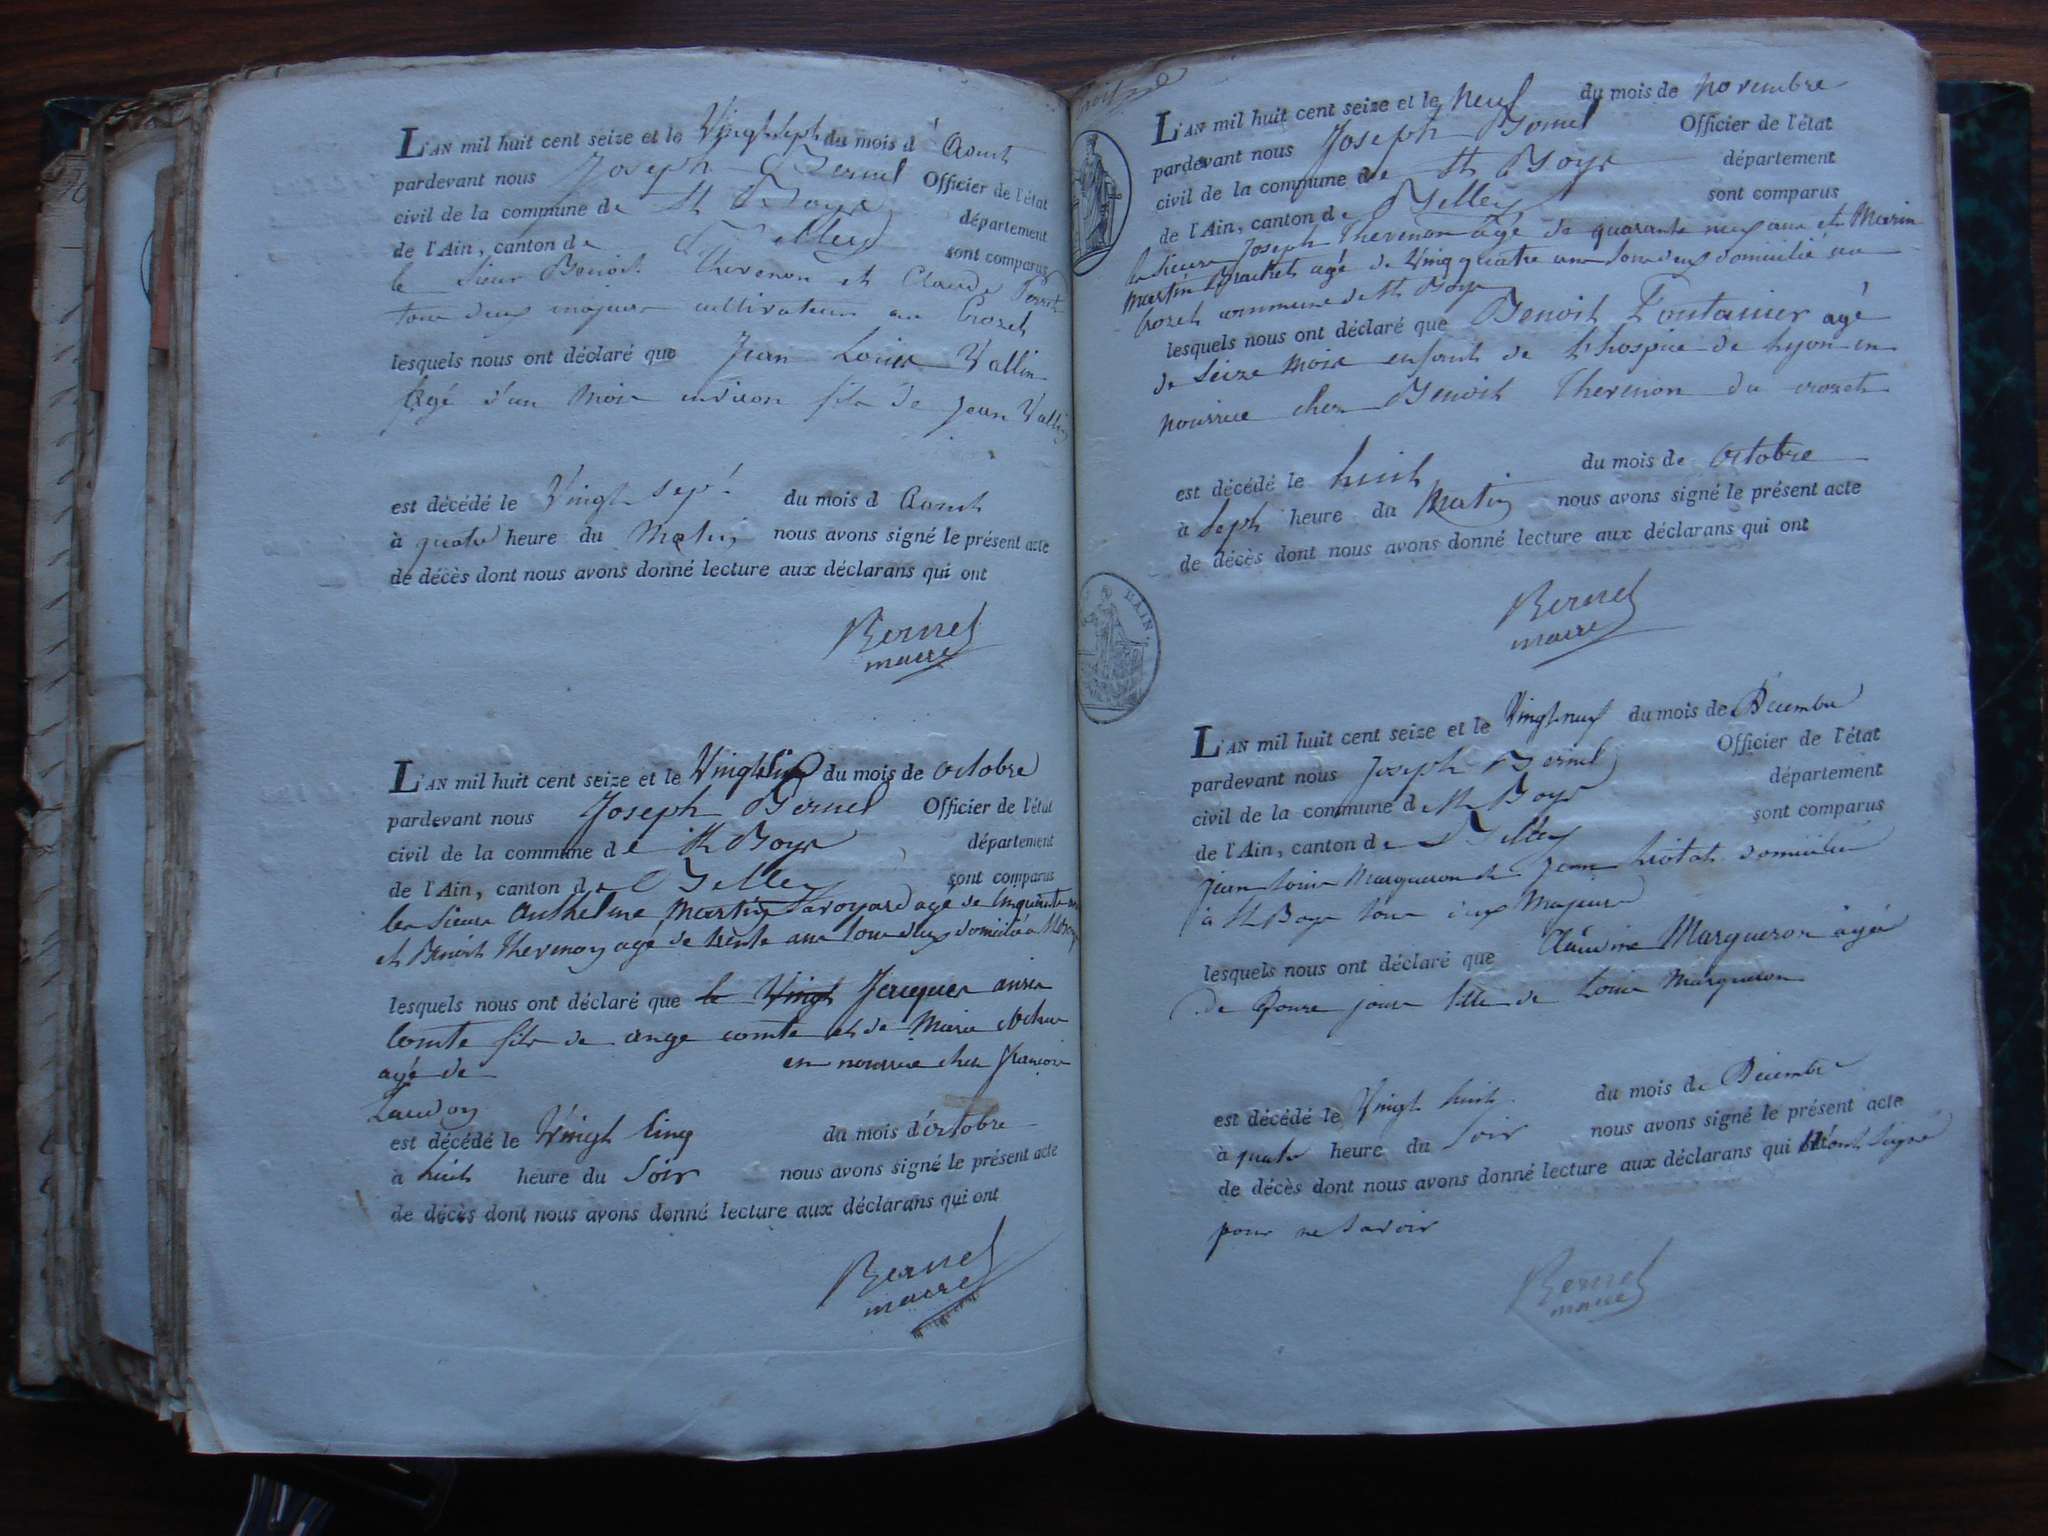 L'AN mil huit cent seize et le Vingt sept du mois d'Aoust
pardevant nous Joseph Bernel Officier de l'état
civil de la commune de St Boys département
de l'Ain, canton de Belley sont comparus
le Sieur Benoit Thevenon et Claude
tous deux majeurs cultivateurs au Crozet
lesquels nous ont déclaré que Jean Louis Vallin
Agé d'un mois environ fils de Jean Vallin
est décédé le Vingt sept du mois d Aoust
à quatre heure du Matin nous avons signé le présent acte
de décès dont nous avons donné lecture aux déclarans qui ont
Bernel
maire
L'AN mil huit cent seize et le Vingt du mois de octobre
pardevant nous Joseph Bernel Officier de l'état
civil de la commune de St Boys département
de l'Ain, canton de Belley sont comparus
les Sieurs Anthelme Martin Savoyard agé de cinquante
et Benoit Thevenon agé de trente ans tous deux domicilié à
lesquels nous ont déclaré que le Vingt Jacques
Comte fils de ange comte et de Marie
agé de en nourrice chez françois
Laudon
est décédé le Vingt Cinq du mois d'octobre
à huit heure du Soir nous avons signé le présent acte
de décès dont nous avons donné lecture aux déclarans qui ont
Bernel
maire
L'AN mil huit cent seize et le Neuf du mois de Novembre
pardevant nous Joseph Bernel Officier de l'état
civil de la commune de St Boys département
de l'Ain, canton de Belley sont comparus
le Sieurs Joseph Thevenon âgé de quarante neuf ans et
Martin Brachet agé de Vingquatre ans tous deux domicilié au
Crozet commune de St Boys
lesquels nous ont déclaré que Benoit Fontanier agé
de Seize Mois enfant de L'hospice de Lyon en
nourrice chez Benoit Thevenon du crozet
est décédé le huit du mois de octobre
à Sept heure du Matin nous avons signé le présent acte
de décès dont nous avons donné lecture aux déclarans qui ont
Bernel
maire
L'AIN.
L'AN mil huit cent seize et le Vingt neuf du mois de Décembre
pardevant nous Joseph Bernel Officier de l'état
civil de la commune de St Boys département
de l'Ain, canton de Belley sont comparus
Jean Louis Margueron et domicilié
à St Boys tous deux Majeurs
lesquels nous ont déclaré que Claudine Margueron agée
de Douze jours fille de Louis Margueron
est décédé le Vingt huit du mois de Décembre
à quatre heure du Soir nous avons signé le présent acte
de décès dont nous avons donné lecture aux déclarans qui n'ont signé
pour ne Savoir
Bernel
maire